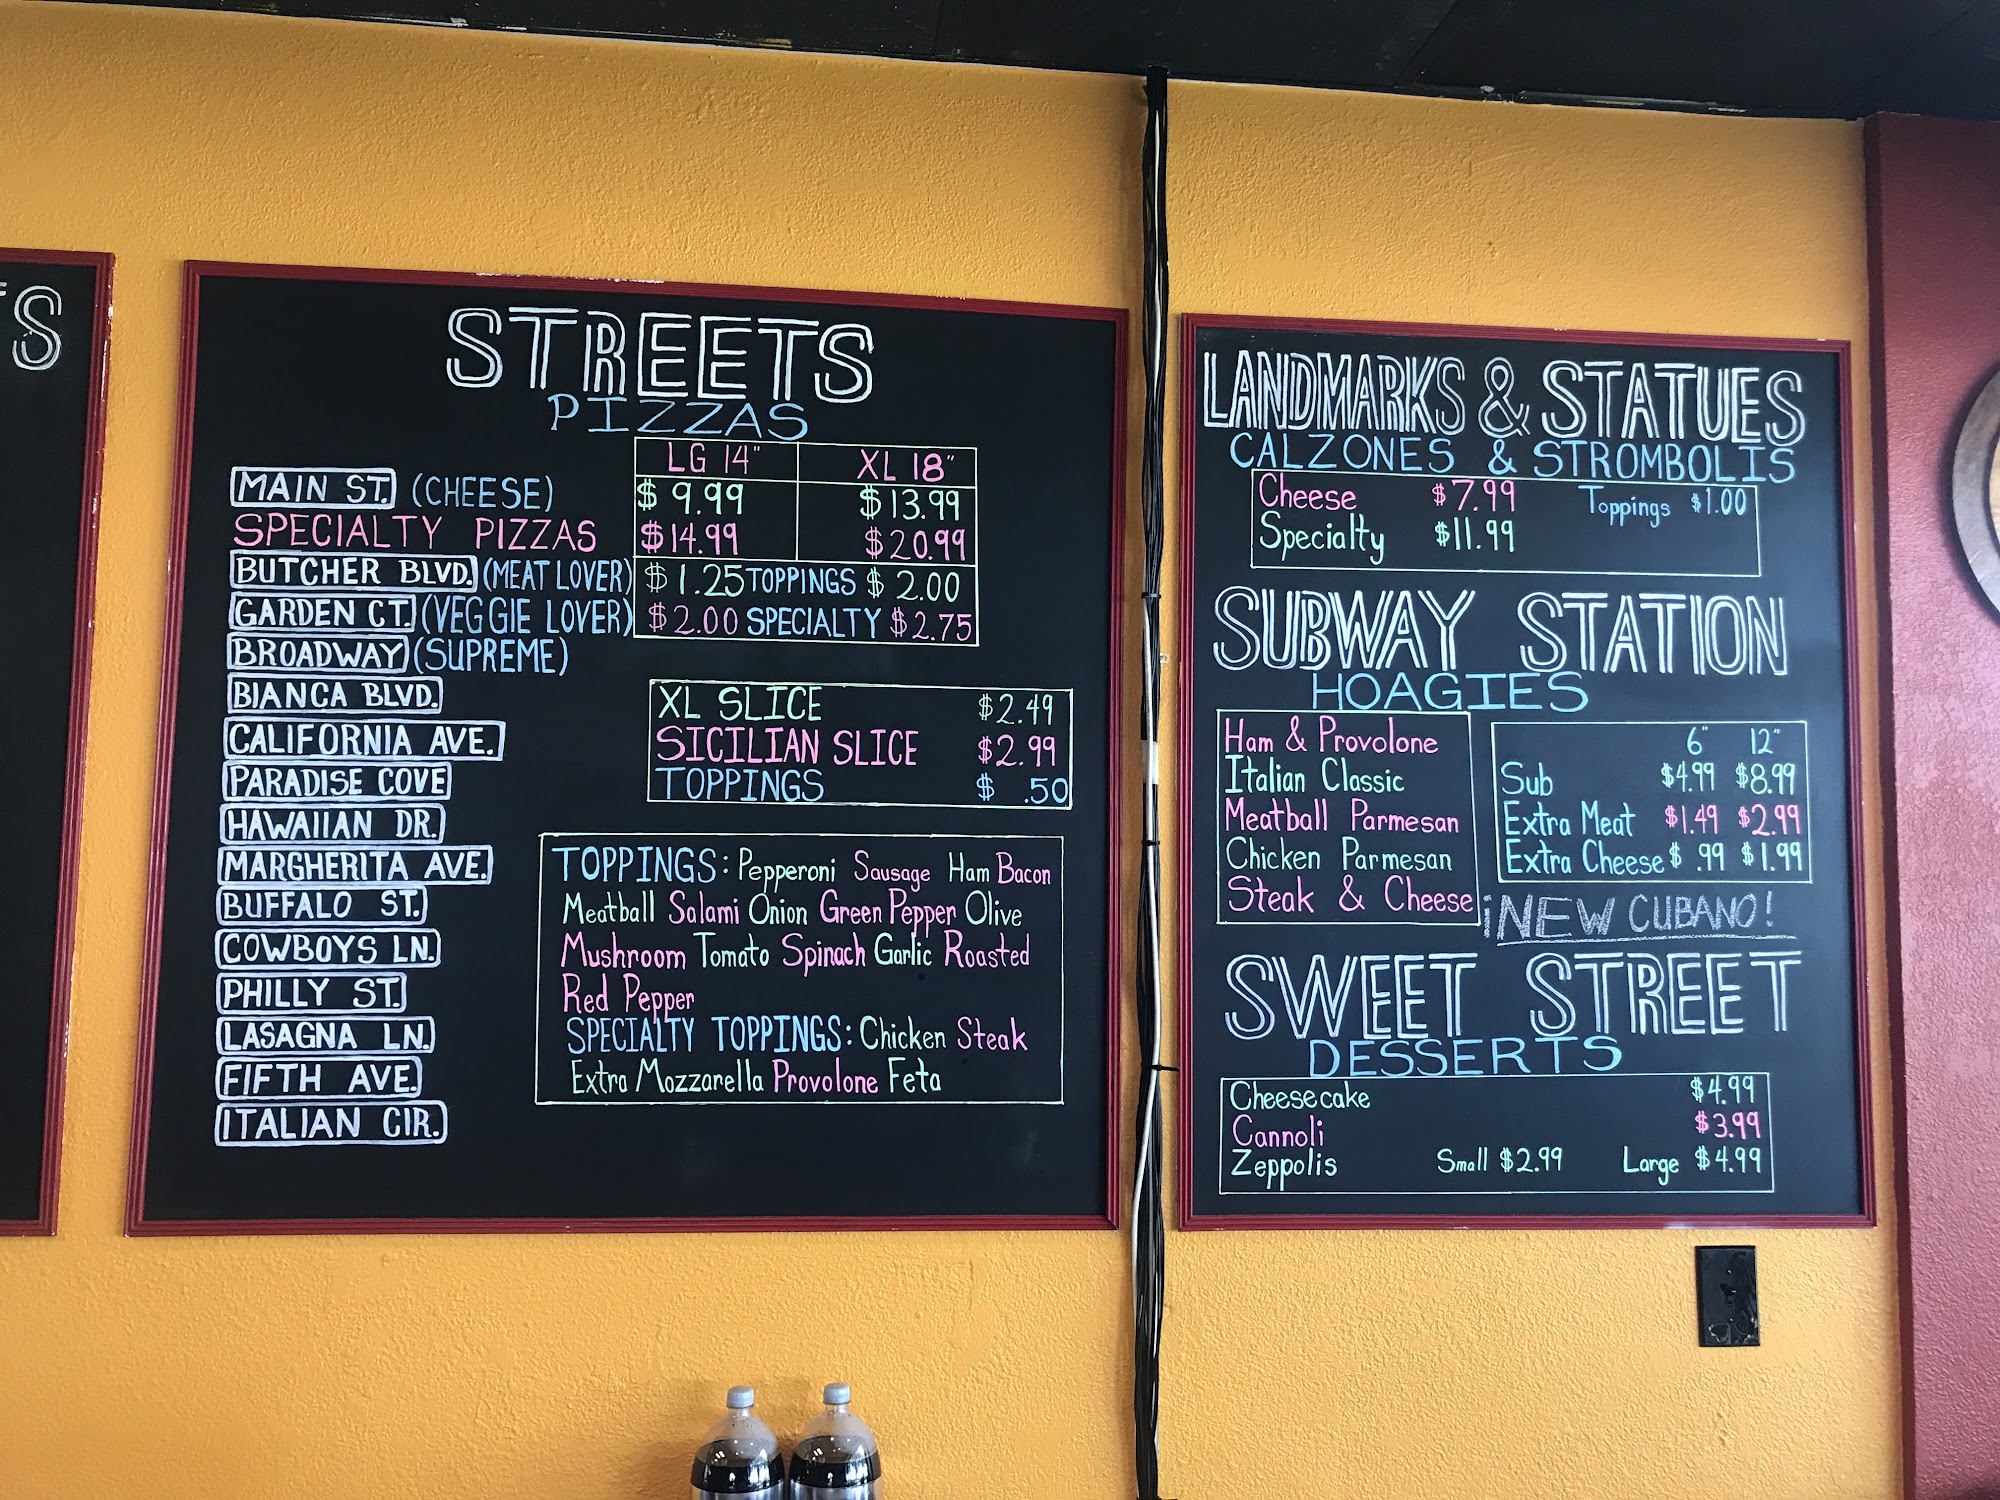 STREETS
PIZZAS
LG 14" XL 18"
MAIN ST. (CHEESE) $ 9.99 $13.99
SPECIALTY PIZZAS $14.99 $20.99
BUTCHER BLVD. (MEAT LOVER) $1.25 TOPPINGS $2.00
GARDEN CT. (VEGGIE LOVER) $2.00 SPECIALTY $2.75
BROADWAY (SUPREME)
BIANCA BLVD.
CALIFORNIA AVE.
PARADISE COVE
HAWAIIAN DR.
MARGHERITA AVE.
BUFFALO ST.
COWBOYS LN.
PHILLY ST.
LASAGNA LN.
FIFTH AVE.
ITALIAN CIR.
XL SLICE $2.49
SICILIAN SLICE $2.99
TOPPINGS $ .50
TOPPINGS: Pepperoni Sausage Ham Bacon
Meatball Salami Onion Green Pepper Olive
Mushroom Tomato Spinach Garlic Roasted
Red Pepper
SPECIALTY TOPPINGS: Chicken Steak
Extra Mozzarella Provolone Feta
LANDMARKS & STATUES
CALZONES & STROMBOLIS
Cheese $7.99 Toppings $1.00
Specialty $11.99
SUBWAY STATION
HOAGIES
Ham & Provolone
Italian Classic
Meatball Parmesan
Chicken Parmesan
Steak & Cheese
6" 12"
Sub $4.99 $8.99
Extra Meat $1.49 $2.99
Extra Cheese $ .99 $1.99
¡NEW CUBANO!
SWEET STREET
DESSERTS
Cheesecake $4.99
Cannoli $3.99
Zeppolis Small $2.99 Large $4.99